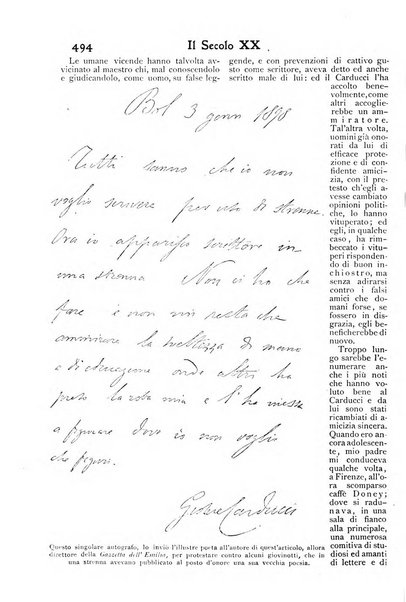 494
Il Secolo XX
Le umane vicende hanno talvolta av-
vicinato al maestro chi, mal conoscendolo
e giudicandolo, come uomo, su false leg-
gende, e con prevenzioni di cattivo gu-
sto come scrittore, aveva detto ed anche
scritto male di lui; ed il Carducci l'ha
accolto bene-
volmente, come
altri accoglie-
rebbe un am-
miratore.
Tal'altra volta,
uomini già ono-
rati da lui di
efficace prote-
zione e di con-
fidente amici-
zia, con il pre-
testo ch'egli a-
vesse cambiato
opinioni politi-
che, lo hanno
vituperato; ed
egli, in qualche
caso, ha rim-
beccato i vitu-
perî risponden-
do di buon in-
chiostro, ma
senza adirarsi
contro i falsi
amici che do-
mani forse, se
fossero in di-
sgrazia, egli be-
neficherebbe di
nuovo.
Troppo lun-
go sarebbe l'e-
numerare an-
che i più noti
che hanno vo-
luto bene al
Carducci e da
lui sono stati
ricambiati di a-
micizia sincera.
Quando ero an-
cora adolescen-
te, mio padre
mi conduceva
qualche volta,
a Firenze, all'o-
ra scomparso
caffè Doney;
dove si radu-
nava, in una
sala di fianco
alla principale,
una numerosa
comitiva di stu-
diosi ed amanti
di lettere e di
Bol 3 genn 1898
Tutti sanno che io non
voglio scrivere per uso di strenne.
Ora io apparisco scrittore in
una strenna. Non ci ho che
fare e non mi resta che
ammirare la sveltezza di mano
e di educazione onde altri ha
preso la roba mia e l'ha messa
a figurare dove io non voglio
che figuri.
Giosue Carducci
Questo singolare autografo, lo inviò l'illustre poeta all'autore di quest'articolo, allora
direttore della Gazzetta dell' Emilia, per protestare contro alcuni giovinotti, che in
una strenna avevano pubblicato al posto d'onore una sua vecchia poesia.